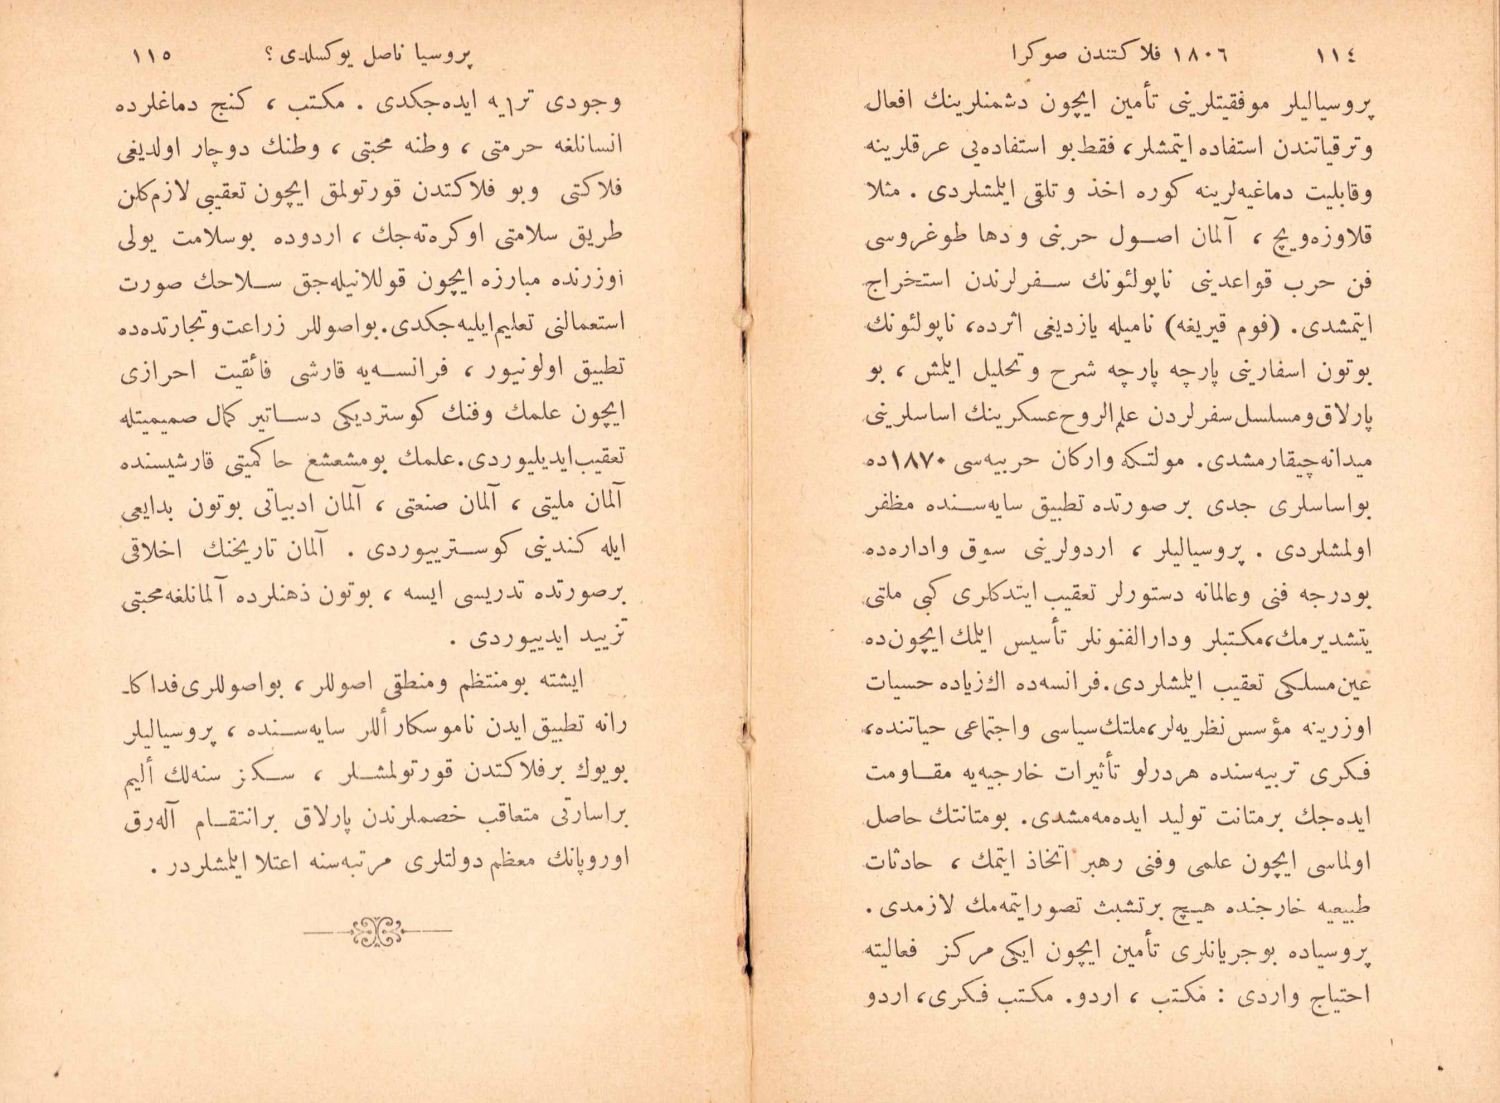 ١١٤ ١٨٠٦ فلاكتندن صوكرا
پروسياليلر موفقيتلرينى تأمين ايچون دشمنلرينك افعال
وترقياتندن استفاده ايتمشلر، فقط بو استفاده‌يى عرقلرينه
وقابليت دماغيه‌لرينه كوره اخذ وتلقى ايلمشلردى . مثلا
قلاوزه‌ويچ ، آلمان اصول حربنى ودها طوغروسى
فن حرب قواعدينى ناپولئونك سفرلرندن استخراج
ايتمشدى. (فوم قيريغه) ناميله يازديغى اثرده، ناپولئونك
بوتون اسفارينى پارچه پارچه شرح وتحليل ايلمش ، بو
پارلاق ومسلسل سفرلردن علم‌الروح عسكرينك اساسلرينى
ميدانه چيقارمشدى. مولتكه واركان حربيه‌سى ١٨٧٠ده
بو اساسلرى جدى بر صورتده تطبيق سايه‌سنده مظفر
اولمشلردى . پروسياليلر ، اردولرينى سوق واداره‌ده
بودرجه فنى وعالمانه دستورلر تعقيب ايتدكلرى كبى ملتى
يتشديرمك، مكتبلر ودارالفنونلر تأسيس ايلمك ايچون‌ده
عين مسلكى تعقيب ايلمشلردى. فرانسه‌ده اك زياده حسيات
اوزرينه مؤسس نظريه‌لر، ملتك سياسى واجتماعى حياتنده،
فكرى تربيه‌سنده هردرلو تأثيرات خارجيه‌يه مقاومت
ايده‌جك برمتانت توليد ايده‌مه‌مشدى. بومتانتك حاصل
اولماسى ايچون علمى وفنى رهبر اتخاذ ايتمك ، حادثات
طبيعيه خارجنده هيچ برتشبث تصور ايتمه‌مك لازمدى .
پروسياده بوجريانلرى تأمين ايچون ايكى مركز فعاليته
احتياج واردى : مكتب ، اردو. مكتب فكرى، اردو
پروسيا ناصل يوكسلدى ؟ ١١٥
وجودى تربيه ايده‌جكدى . مكتب ، كنج دماغلرده
انسانلغه حرمتى ، وطنه محبتى ، وطنك دوچار اولديغى
فلاكتى وبو فلاكتدن قورتولمق ايچون تعقيبى لازم‌كلن
طريق سلامتى اوكره‌ته‌جك ، اردوده بوسلامت يولى
اوزرنده مبارزه ايچون قوللانيله‌جق سلاحك صورت
استعمالنى تعليم ايليه‌جكدى. بواصوللر زراعت وتجارتده‌ده
تطبيق اولونيور ، فرانسه‌يه قارشى فائقيت احرازى
ايچون علمك وفنك كوستردیكى دساتير كمال صميميتله
تعقيب ايديليوردى. علمك بومشعشع حاكميتى قارشيسنده
آلمان مليتى ، آلمان صنعتى ، آلمان ادبياتى بوتون بدايعى
ايله كندينى كوسترييوردى . آلمان تاريخنك اخلاقى
برصورتده تدريسى ايسه ، بوتون ذهنلرده آلمانلغه محبتى
تزييد ايدييوردى .
ايشته بومنتظم ومنطقى اصوللر ، بواصوللرى فداكا-
رانه تطبيق ايدن ناموسكار أللر سايه‌سنده ، پروسياليلر
بويوك برفلاكتدن قورتولمشلر ، سكز سنه‌لك أليم
براسارتى متعاقب خصملرندن پارلاق برانتقام آله‌رق
اوروپانك معظم دولتلرى مرتبه‌سنه اعتلا ايلمشلردر .